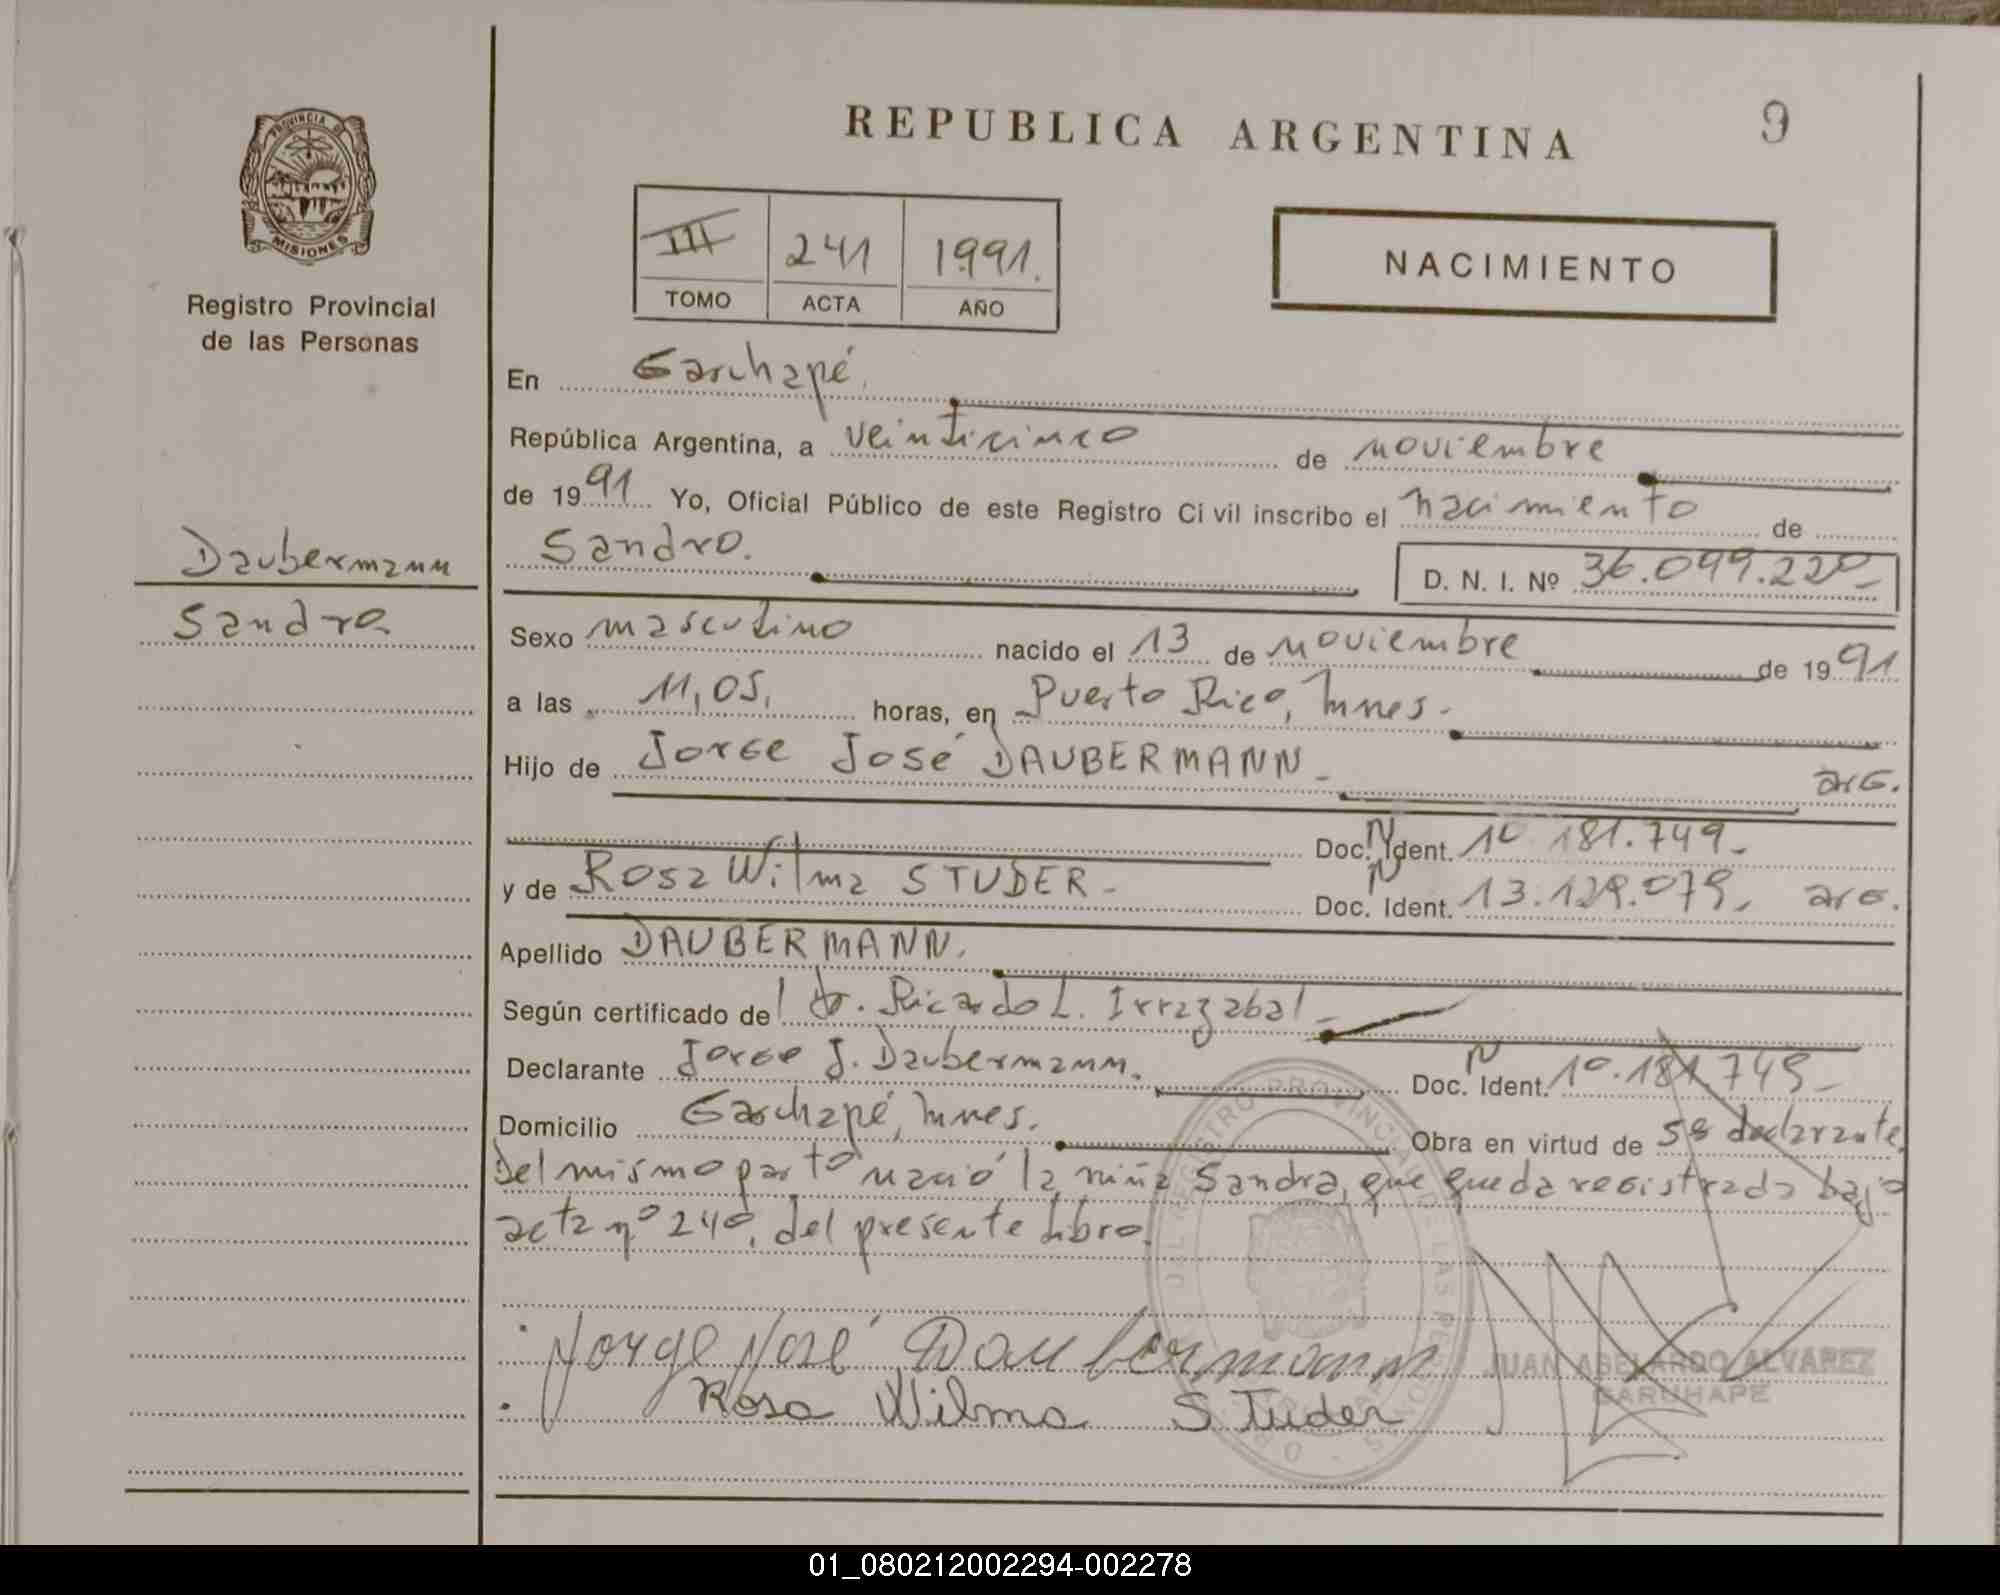 REPUBLICA ARGENTINA
9
PROVINCIA DE
MISIONES
Registro Provincial
de las Personas
III 241 1991.
TOMO ACTA AÑO
NACIMIENTO
En Garuhapé.
República Argentina, a veinticinco de noviembre
de 1991 Yo, Oficial Público de este Registro Civil inscribo el nacimiento de
Sandro.
D. N. I. Nº 36.099.220-
Daubermann
Sandro
Sexo masculino nacido el 13 de noviembre de 1991
a las 11,05, horas, en Puerto Rico, Mnes.
Hijo de Jorge José DAUBERMANN- arg.
Doc. Ident. 10.181.749-
y de Rosa Wilma STUDER- Doc. Ident. 13.129.079, arg.
Apellido DAUBERMANN.
Según certificado del dr. Ricardo L. Irrazabal-
Declarante Jorge J. Daubermann. Doc. Ident. 10.181.749-
Domicilio Garuhapé, Mnes. Obra en virtud de ser declarante.
Del mismo parto nació la niña Sandra, que queda registrada bajo
acta nº 240, del presente libro.
Jorge José Daubermann
JUAN ABELARDO ALVAREZ
GARUHAPE
Rosa Wilma Studer
01_080212002294-002278